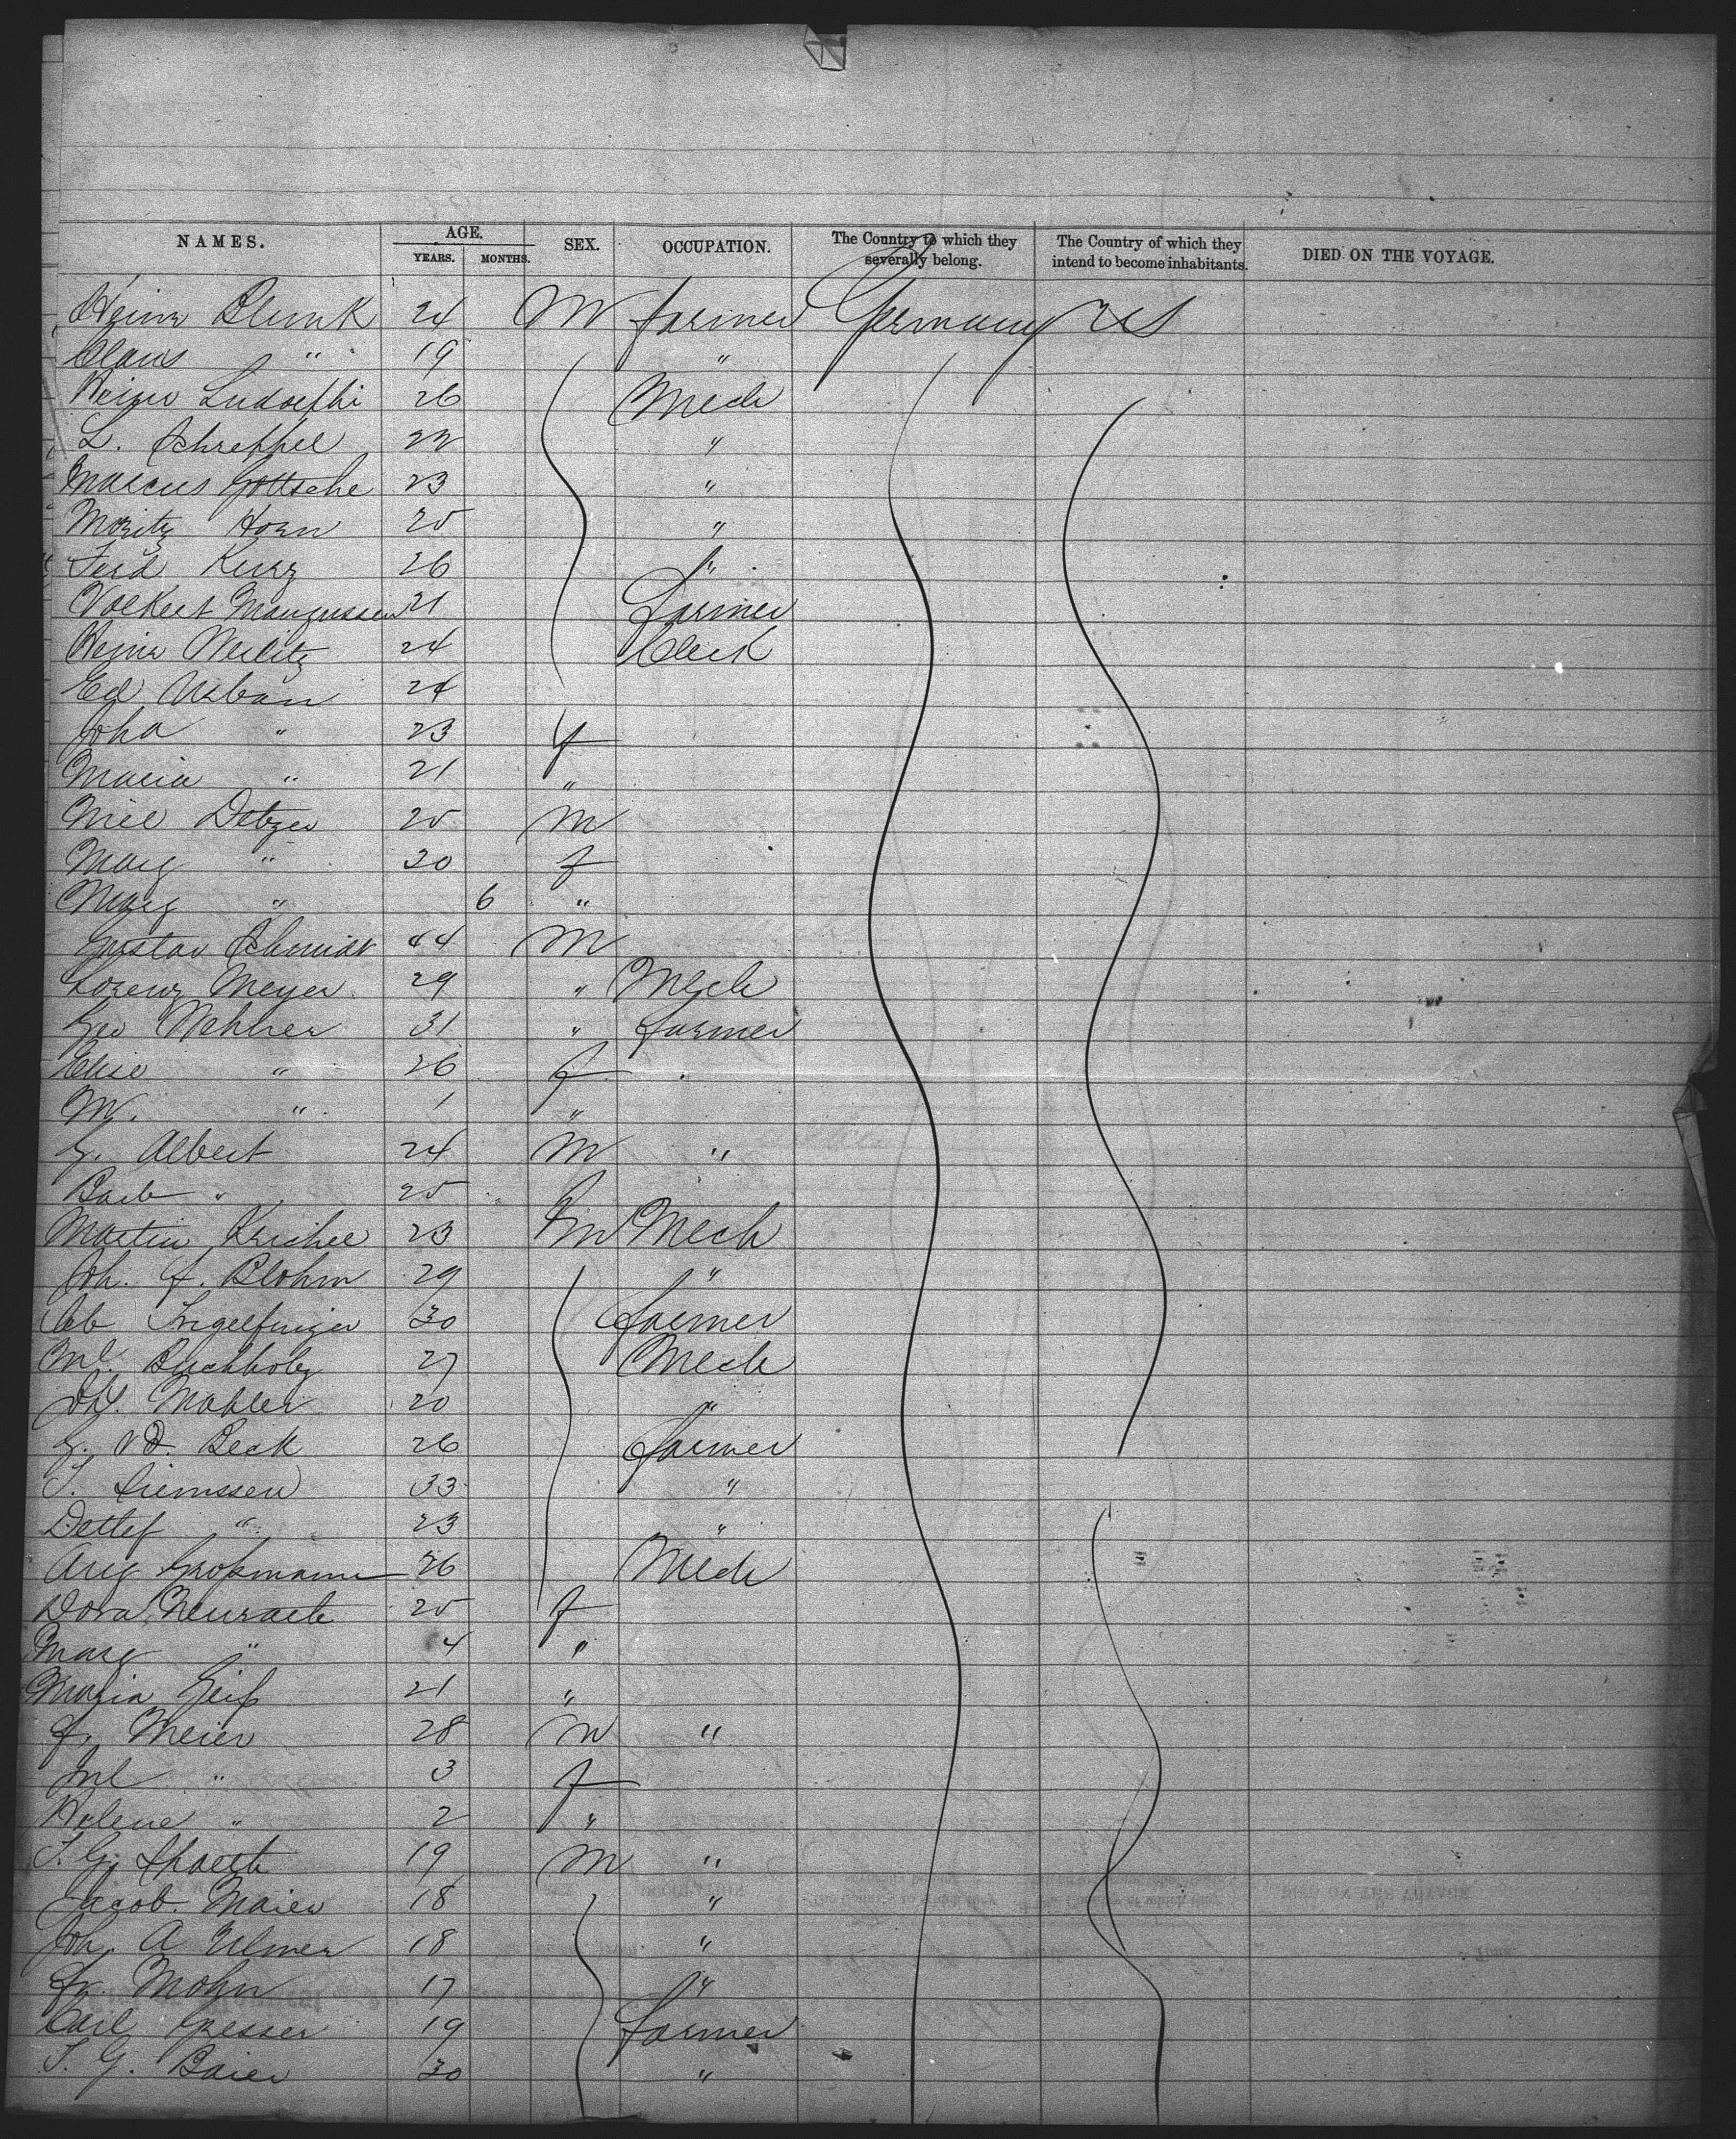 NAMES. AGE. YEARS. MONTHS. SEX. OCCUPATION. The Country to which they severally belong. The Country of which they intend to become inhabitants. DIED ON THE VOYAGE.
Heinr Blunk 24 M farmer Germany US
Claus " 19 "
Heinr Ludolphi 26 Mech
L. Schreppel 22 "
Marcus Gottsche 23 "
Moritz Horn 25 "
Ferd Kurz 26 "
Volkert Mangussen 21 Farmer
Heinr Weilitz 24 Clerk
Ed Urban 24
Joha " 23 f
Maria " 21 "
Nic Detzer 25 M
Marg " 20 f
Marg " 6 "
Gustav Schmidt 44 M
Lorenz Meyer 29 " Mech
Geo Wehner 31 " farmer
Elise " 26 f
M. " 1 "
G. Albert 24 M "
Barb " 25
Martin Krichel 23 m Mech
Joh. F. Blohm 29 "
30 farmer
Buchholz 27 Mech
Joh. Mahler 20 "
G. v D. Beck 26 farmer
J. Siemssen 33 "
Detlef " 23 "
Aug Großmann 26 Mech
Dora 25 f
Marg " 4 "
Maria Geiß 21 "
F. Meier 28 M "
" 3 f
Helene " 2 "
J. G. Spaeth 19 M "
Jacob Maier 18 "
Joh. A Ulmer 18 "
Fr. Mohn 17 "
Carl Gresser 19 farmer
J. G. Baier 30 "